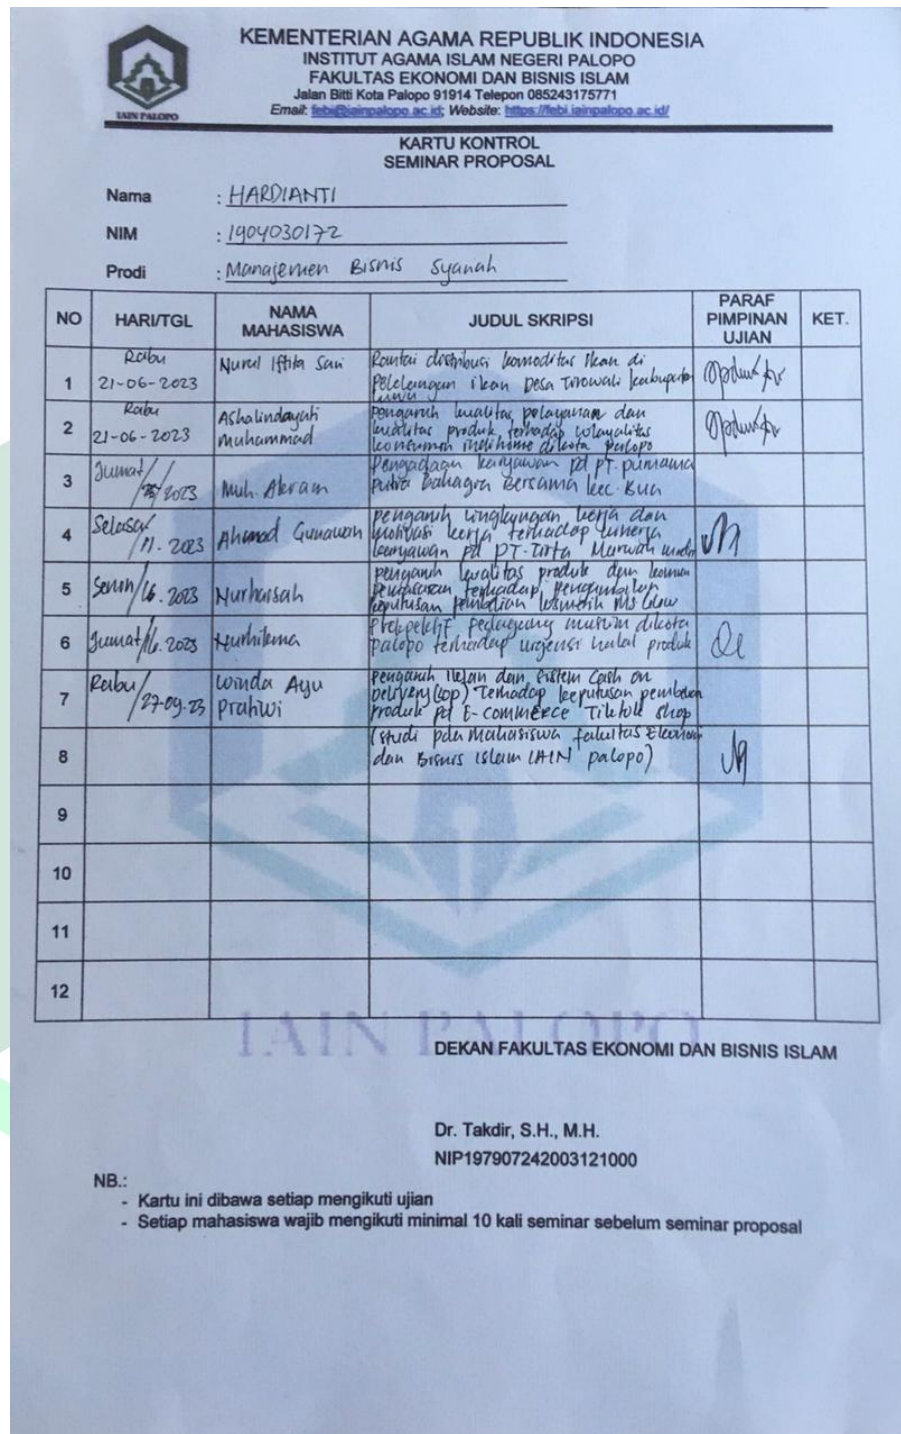 KEMENTERIAN AGAMA REPUBLIK INDONESIA
INSTITUT AGAMA ISLAM NEGERI PALOPO
FAKULTAS EKONOMI DAN BISNIS ISLAM
Jalan Bitti Kota Palopo 91914 Telepon 085243175771
Email: febi@iainpalopo.ac.id; Website: https://febi.iainpalopo.ac.id/
IAIN PALOPO
KARTU KONTROL
SEMINAR PROPOSAL
Nama : HARDIANTI
NIM : 1904030172
Prodi : Manajemen Bisnis Syariah
NO HARI/TGL NAMA MAHASISWA JUDUL SKRIPSI PARAF PIMPINAN UJIAN KET.
1 Rabu 21-06-2023 Nurul Iftita Sari
Rantai distribusi komoditas Ikan di
Pelelangan ikan Desa Tirowali kabupaten
Luwu
2 Rabu 21-06-2023 Ashalindayati Muhammad
Pengaruh kualitas pelayanan dan
kualitas produk terhadap
konsumen indihome dikota palopo
3 Jumat / 2023 Muh. Akram
Pengadaan karyawan pd PT. purnama
Putra Bahagia Bersama kec. Bua
4 Selasa / 11. 2023 Ahmad Gunawan
pengaruh lingkungan kerja dan
motivasi kerja terhadap kinerja
karyawan pd PT. Tirta Marwah
5 Senin / 6. 2023 Nurhaisah
pengaruh kualitas produk dan
pemasaran terhadap pengambilan
keputusan pembelian kosmetik Ms Glow
6 Jumat / 6. 2023 Nurhikma
pedagang muslim dikota
palopo terhadap urgensi halal produk
7 Rabu / 27-09-23 Winda Ayu Pratiwi
pengaruh Iklan dan sistem Cash on
Delivery (cop) Terhadap keputusan pembelian
produk pd E-commerce Tiktok shop
8
(studi pda Mahasiswa fakultas Ekonomi
dan Bisnis Islam IAIN palopo)
9
10
11
12
IAIN PALOPO
DEKAN FAKULTAS EKONOMI DAN BISNIS ISLAM
Dr. Takdir, S.H., M.H.
NIP197907242003121000
NB.:
- Kartu ini dibawa setiap mengikuti ujian
- Setiap mahasiswa wajib mengikuti minimal 10 kali seminar sebelum seminar proposal